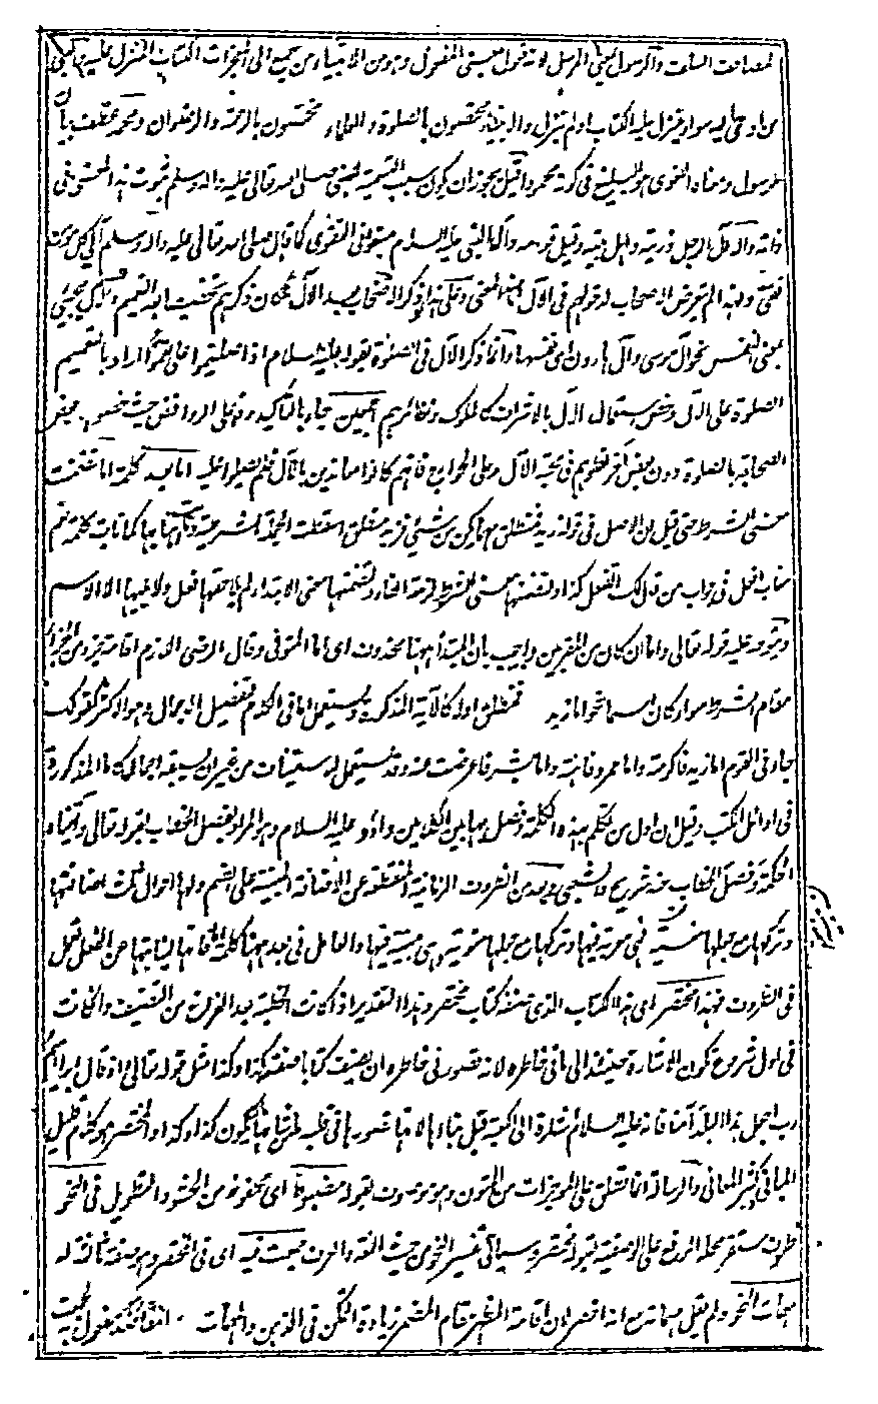 والرسول بمعنى المرسل لا نه فعول بمعنى المفعول وهو من الانبياء من جمع الى المعجزات الكتاب المنزل عليه والنبي
من اوحى اليه سواء ينزل عليه الكتاب اولم ينزل والانبياء مختصون بالصلوة والعلماء مختصون بالرحمة والرضوان ومحمد عطف بيان
لرسول ومعناه اللغوى هو البليغ فى كونه محمودا قيل يجوز ان يكون سبب التسمية لنبي صلى الله تعالى عليه واله وسلم ثبوت هذا المعنى فى
ذاته وال الرجل ذريته واهل بيته وقيل قومه وآل النبي عليه السلام متبعوه فى التقوى كما قال صلى الله تعالى عليه واله وسلم آلى كل مؤمن
تقى ولهذا لم يتعرض الاصحاب
بمعنى النفس نحو آل موسى وآل هارون اى نفسهما وانما ذكر الآل فى الصلوة لقوله عليه السلام اذا صليتم على فعمموا اراد بالتعميم
الصلوة على الآل وخص استعمال الآل بالاشراف كالملوك ونظائرهم اجمعين جاء بالتأكيد رد على الروافض حيث خصوا بعض
الصحابة بالصلوة دون بعض لفرط غلوهم فى محبة الآل وعلى الخوارج فانهم كانوا معاندين بالآل فلم يصلوا عليه اما بعد كلمة اما تضمنت
معنى الشرط حتى قيل ان الاصل فى اما زيد فمنطلق مهما يكن من شيئ فزيد منطلق اسقطت الجملة الشرطية ونابت اما منابها كما نابت كلمة نعم
مناب افعل فى جواب من قال لك افعل كذا ولتضمنها معنى الشرط لزمت الفاء ولتضمنها معنى الابتداء لم يلاصقها فعل ولا يليها الا الاسم
ويرد عليه قوله تعالى واما ان كان من المقربين واجيب بان المبتدأ ههنا محذوف اى اما المتوفى وقال الرضى اللازم اقامة جزء من الجزاء
مقام الشرط سواء كان اسما نحو اما زيد فمنطلق اولا كالآية المذكورة ويستعمل اما فى الكلام لتفصيل الاجمال وهو الاكثر كقولك
جاءنى القوم اما زيد فاكرمته واما عمرو فاهنته واما بشر فاعرضت عنه وقد يستعمل لاستيناف من غير ان يسبقه اجمال كاما المذكورة
فى اوائل الكتب وقيل ان اول من تكلم بهذه الكلمة وفصل بها بين الكلامين داؤد عليه السلام وهو المراد بفصل الخطاب لقوله تعالى وآتيناه
الحكمة وفصل الخطاب عند شريح والشعبى وبعد من الظروف الزمانية المنقطعة عن الاضافة المبنية على الضم ولها احوال ثلث اضافتها
وتركها مع جعلها منسية فهى معربة فيهما وتركها مع جعلها منوية وهى مبنية فيها والعامل فى بعد ههنا كلمة اما لنيابتها عن الفعل تعمل
فى الظروف فهذا المختصر اى هذا الكتاب الذى صنفه كتاب مختصر وهذا التقدير اذا كانت الخطبة بعد الفراغ من التصنيف وان كانت
فى اول شروع تكون الاشارة حينئذ الى ما فى خاطره لانه تصور فى خاطره ان يصنف كتابا صفته كذا وكذا مثل قوله تعالى اذ قال ابراهيم
رب اجعل هذا البلد آمنا فانه عليه السلام اشارة الى الكعبة قبل بناءها لانها تصورها فى قلبه كذا وكذا والمختصر هو كلام قليل
المبانى كثير المعانى والرسالة انما تطلق على الموجزات من المتون وهو موصوف لقوله مضبوط اى محفوظ من الحشو والتطويل فى النحو
ظرف مستقر محله الرفع على الوصفية لقوله مختصر وسيأتى تفسير النحو من حيث اللغة والعرف جمعت فيه اى فى المختصر وهو صفة ثانية له
مهمات النحو ولم يقل مهماته مع انه اخصر لان اقامة المظهر مقام المضمر زيادة التمكن فى الذهن والمهمات مفعول به لجمعت